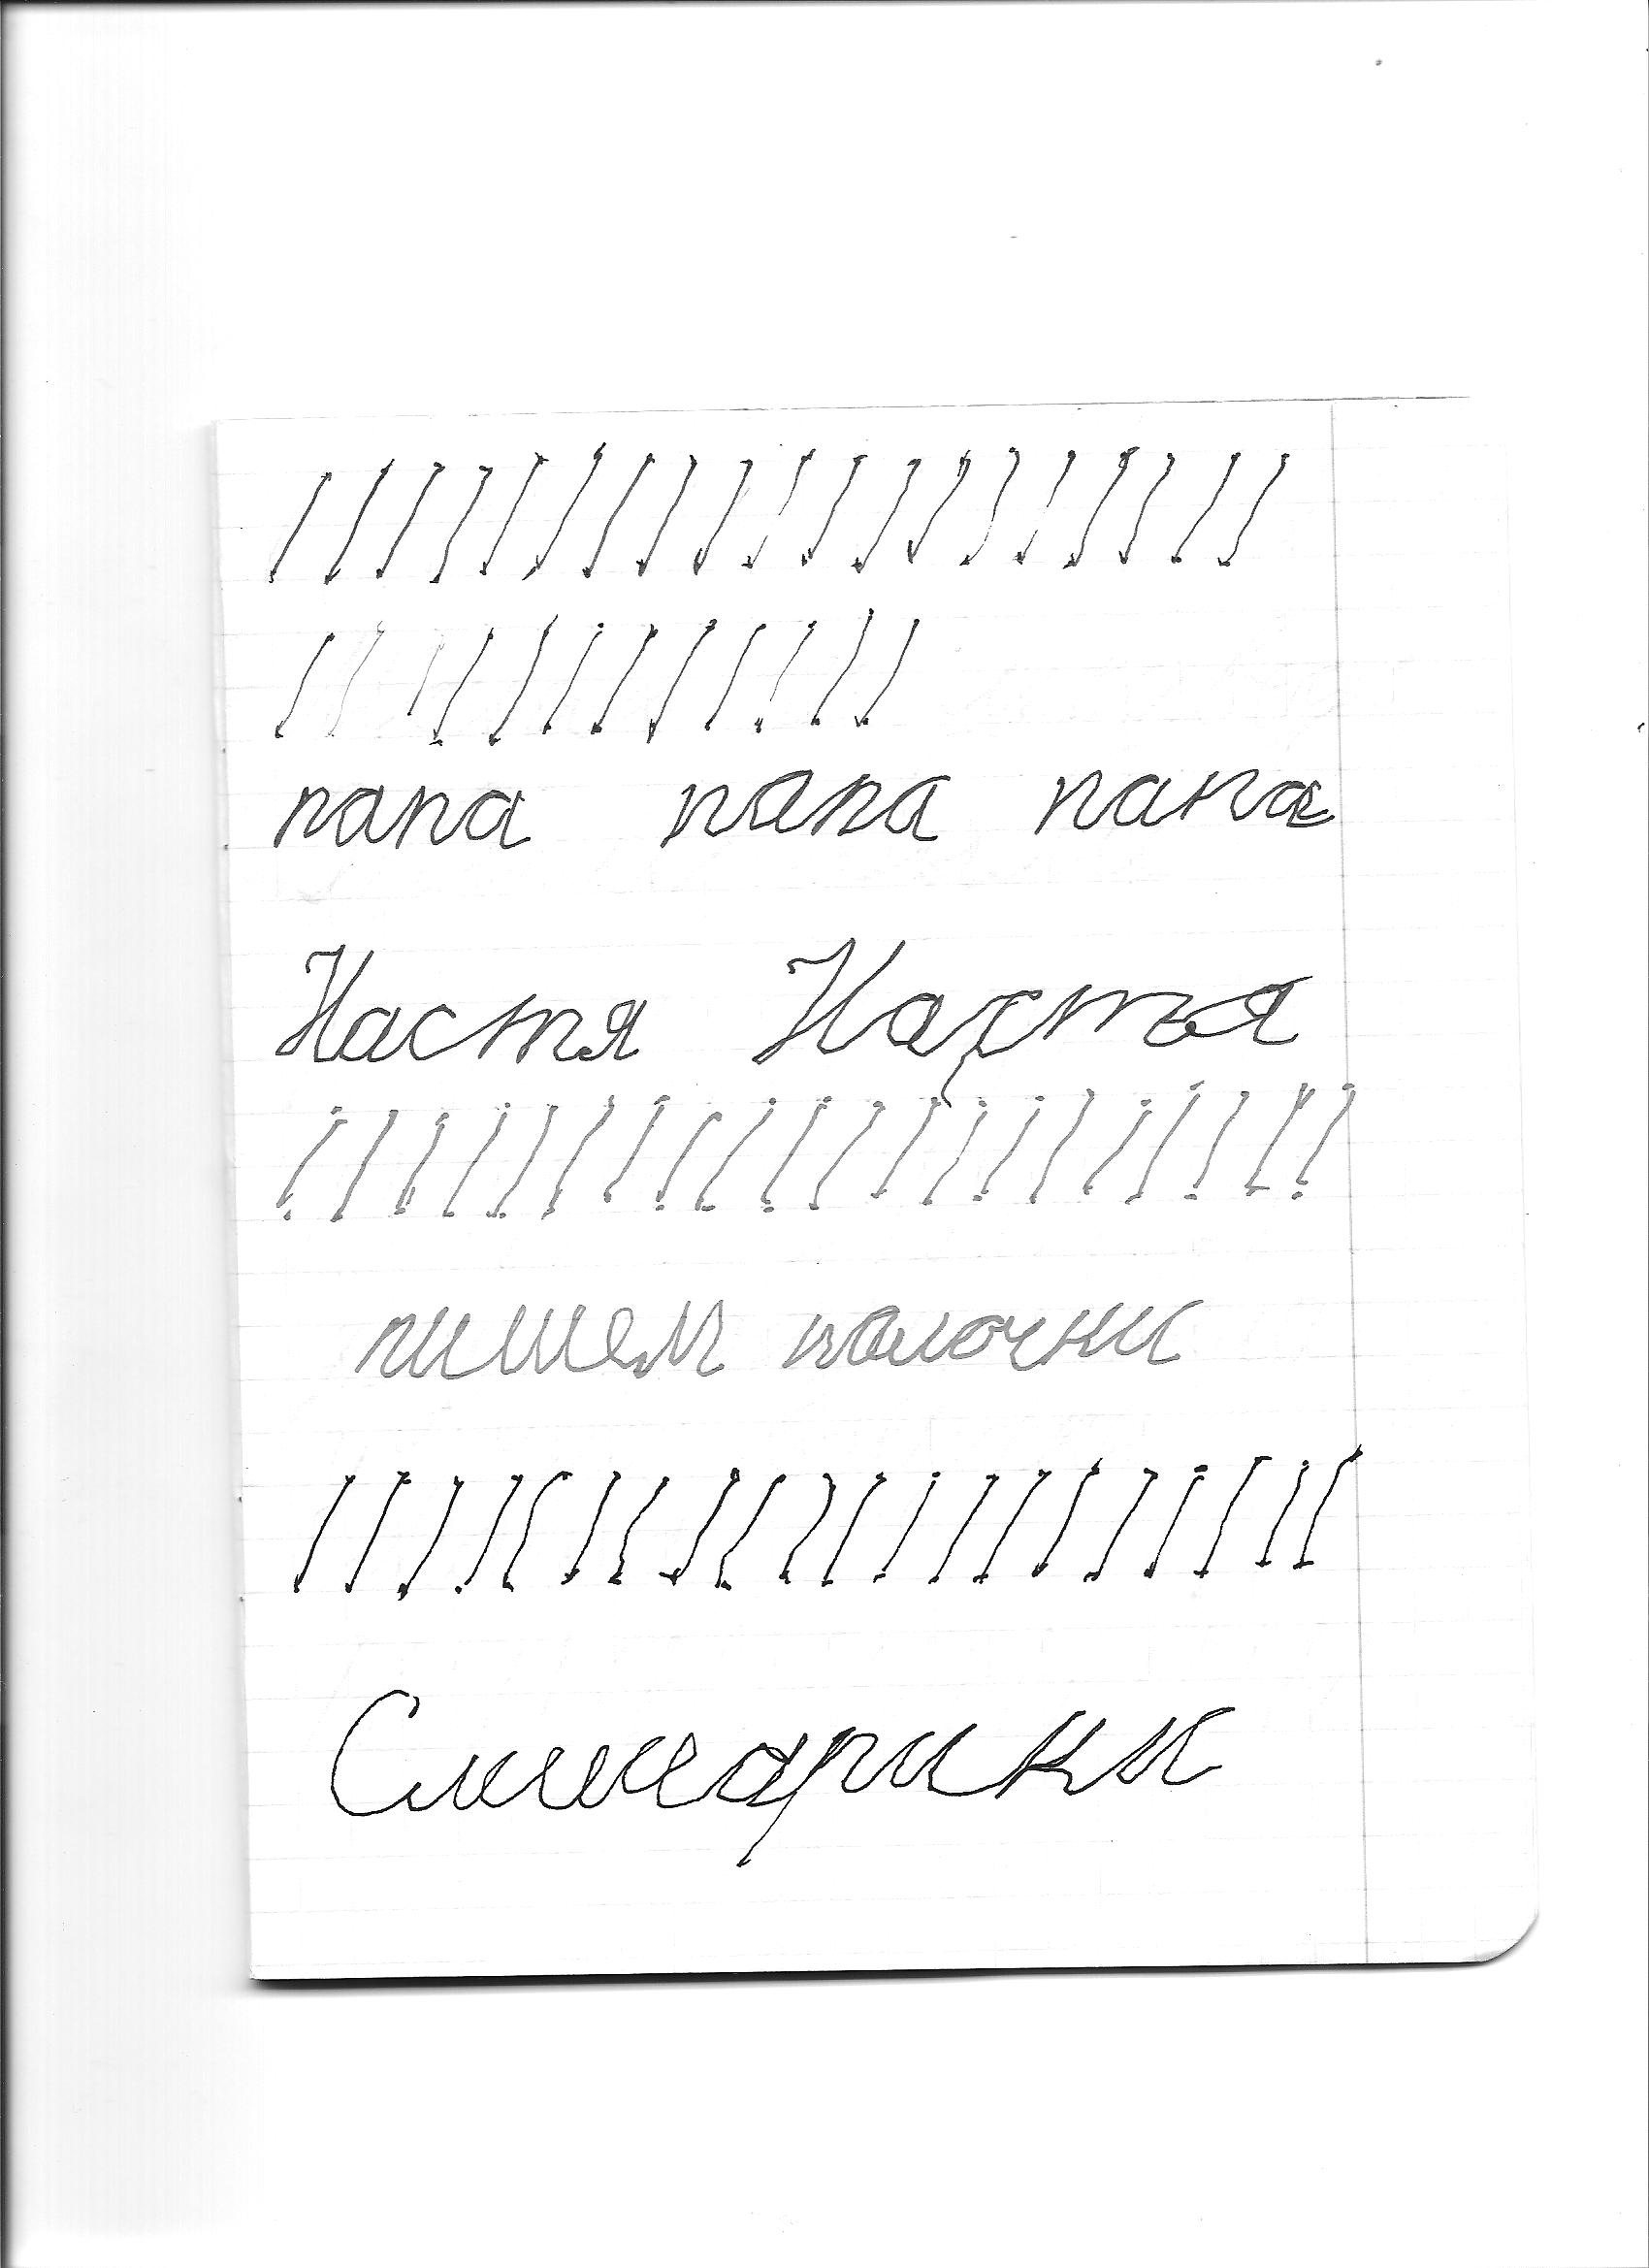 папа папа папа
Настя Настя
пишем палочки
Смешарики